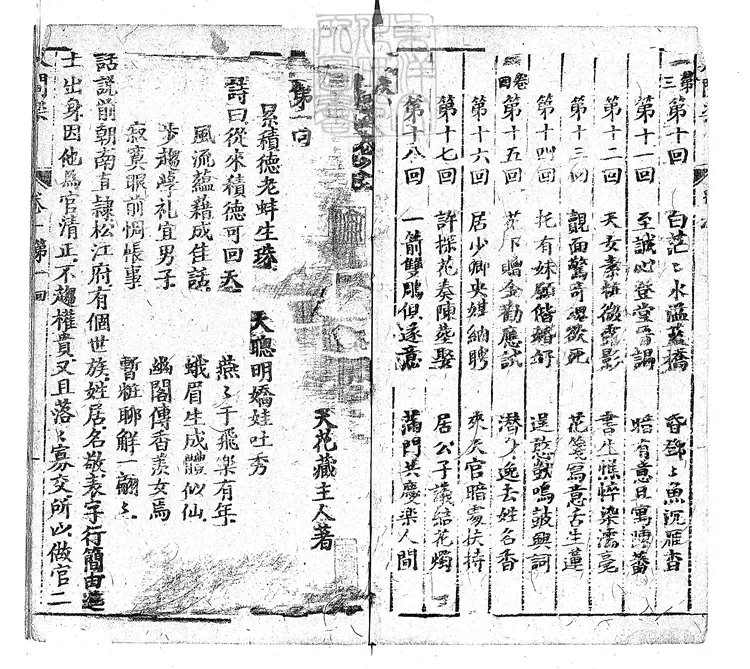 第十回 白茫〻水溢藍橋 昏鄧〻魚沉雁杳
第十一回 至誠心登堂晋謁 暗有意且寓東蕃
第十二回 天女素粧微露影 書生憔悴染濡毫
第十三回 覿面驚奇魂欲死 花箋寫意舌生蓮
第十四回 托有妹願偕 逞憨戲嗚鼓興詞
第十五回 花下贈金勸應試 潛身逸去姓名香
第十六回 居少卿央媒納聘 來夫官暗處扶持
第十七回 許探花奏陳姻娶 居公子議結花燭
第十八回 一箭雙鵰但遂意 滿門共慶樂人間
天花藏主人著
第一回
累積德老蚌生珠 天聰明嬌娃吐秀
詩曰從來積德可回天 燕〻于飛樂有年
風流蘊藉成佳話 蛾眉生成體似仙
步趨學禮宜男子 幽閣傳香羨女焉
寂寞眼前惆悵事 暫粧聊解一翩〻
話說前朝南直隸松江府有個世族姓居名敬表字行簡由進
士出身因他為官清正不趨權貴又且落〻寡交所以做官二
人間樂 卷一 第一回